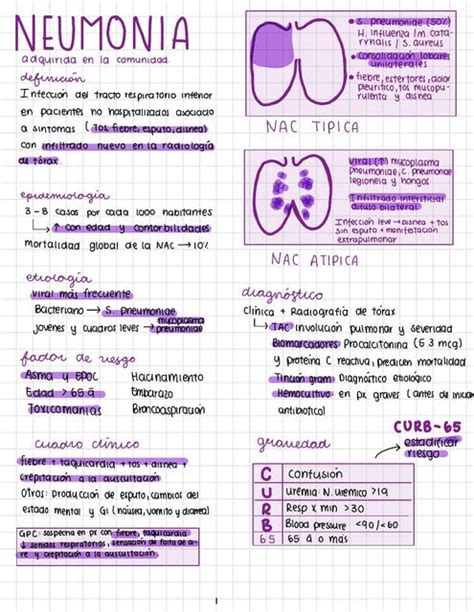 NEUMONIA
adquirida en la comunidad.
definición
Infección del tracto respiratorio inferior
en pacientes no hospitalizados asociado
a síntomas (Tos, fiebre, esputo, disnea)
con infiltrado nuevo en la radiología
de tórax.
epidemiología
3 - 8 casos por cada 1000 habitantes
↳ ↑ con edad y comorbilidades
mortalidad global de la NAC → 10%
etiología
viral más frecuente
Bacteriano → S. pneumoniae
jóvenes y cuadros leves → mycoplasma pneumoniae
factor de riesgo
Asma y EPOC Hacinamiento
Edad > 65 a Embarazo
Toxicomanías Broncoaspiración
cuadro clínico
fiebre + taquicardia + tos + disnea +
crepitación a la auscultación
Otros: Producción de esputo, cambios del
estado mental y GI (náusea, vómito y diarrea)
GPC: sospecha en px con fiebre, taquicardia
↓ sonidos respiratorios, sensación de falta de ai-
re y crepitación a la auscultación
S. pneumoniae (50%)
H. influenza / m. cata-
rrhalis / S. aureus
Consolidación lobares
unilaterales
fiebre, estertores, dolor
pleurítico, tos mucopu-
rulenta y disnea
NAC TIPICA
viral (↑) mycoplasma
pneumoniae, c. pneumoniae
legionela y hongos
Infiltrado intersticial
difuso bilateral
Infección leve → disnea + tos
sin esputo + manifestación
extrapulmonar
NAC ATIPICA
diagnóstico
clínica + Radiografía de tórax
↳ TAC: involución pulmonar y severidad
Biomarcadores: Procalcitonina (5.3 mcg)
y proteína C reactiva, predicen mortalidad
Tinción gram: Diagnóstico etiológico
Hemocultivo: en px graves (antes de iniciar
antibiótico)
CURB-65
gravedad → estadificar
riesgo
C Confusión
U urémia: N. uremico >19
R Resp x min >30
B Blood pressure <90/<60
65 65 a o más
1